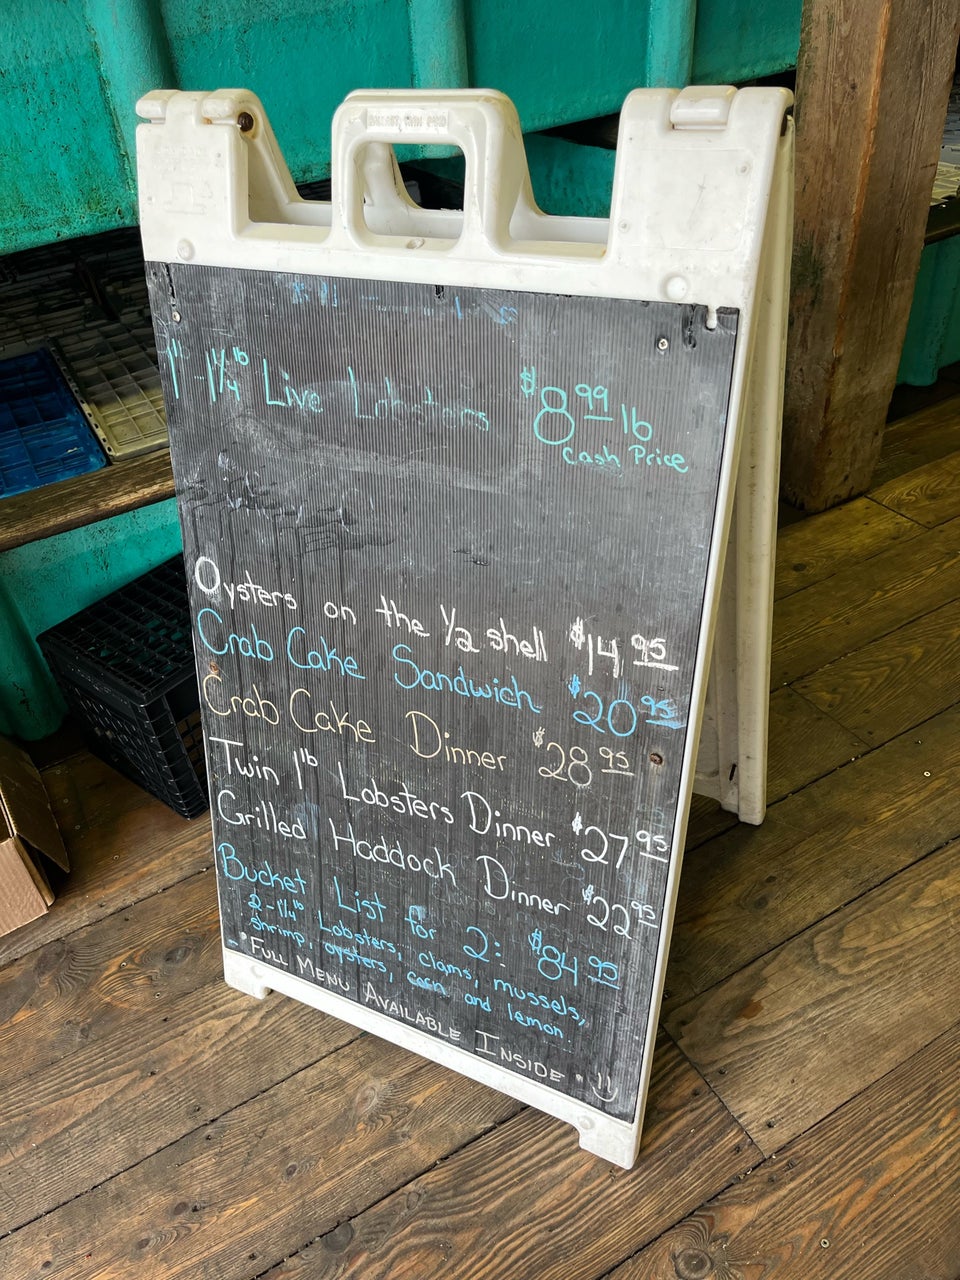 1lb - 1¼ lb Live Lobsters $8.99 lb
Cash Price
Oysters on the ½ shell $14.95
Crab Cake Sandwich $20.95
Crab Cake Dinner $28.95
Twin 1lb Lobsters Dinner $27.95
Grilled Haddock Dinner $22.95
Bucket List for 2: $84.95
2-1¼ lb Lobsters, clams, mussels,
shrimp, oysters, corn and lemon.
*Full Menu Available Inside •